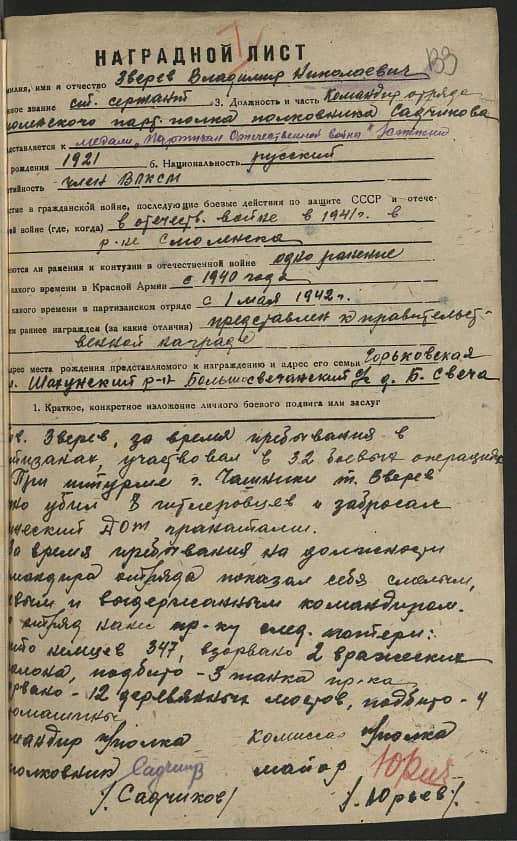 133
НАГРАДНОЙ ЛИСТ
амилия, имя и отчество Зверев Владимир Николаевич
нное звание ст. сержант 3. Должность и часть Командир отряда
моленского парт. полка полковника Садчикова
едставляется к медали "Партизан Отечественной войны"
рождения 1921 6. Национальность русский
тийность член ВЛКСМ
стие в гражданской войне, последующие боевые действия по защите СССР и отече-
ой войне (где, когда) в отечеств. войне в 1941 г. в
р-не Смоленска
еются ли ранения и контузии в отечественной войне одно ранение
какого времени в Красной Армии с 1940 года
какого времени в партизанском отряде с 1 мая 1942 г.
м ранее награжден (за какие отличия) представлен к правительст-
венной награде
дрес места рождения представляемого к награждению и адрес его семьи Горьковская
л. Шахунский р-н Большесвечанский с/с д. Б. Свеча
1. Краткое, конкретное изложение личного боевого подвига или заслуг
Зверев, за время пребывания в
тизанах, участвовал в 32 боевых операциях
При штурме г. Чашники т. Зверев
но убил 8 гитлеровцев и забросал
ический ДОТ гранатами.
За время пребывания на должности
мандира отряда показал себя смелым,
евым и выдержанным командиром.
отряд нанес пр-ку след. потери:
ито немцев 347, взорвано 2 вражеских
елона, подбито - 3 танка пр-ка
рвано - 12 деревянных мостов, подбито - 4
томашины
мандир п/полка комиссар п/полка
полковник Садчиков майор Юрьев
/Садчиков/ /Юрьев/.